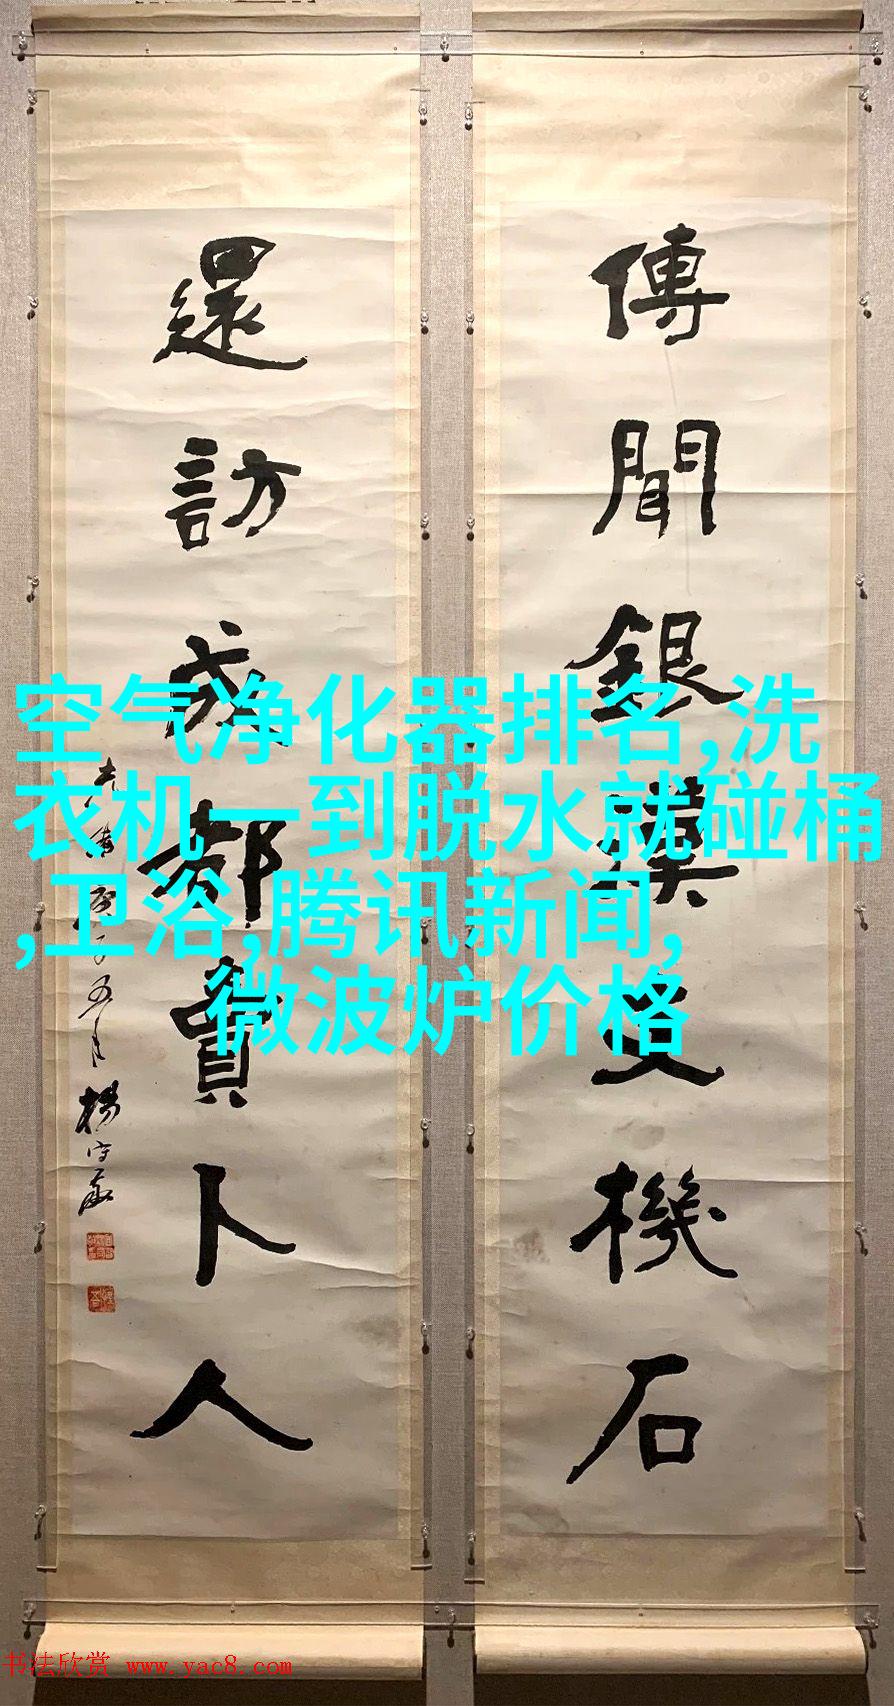 傳聞銀漢支機石
還訪成都賣卜人
光緒庚子五月
楊守敬
空气净化器排名,洗
衣机一到脱水就碰桶
,卫浴,腾讯新闻,
微波炉价格
书法欣赏 www.yac8.com